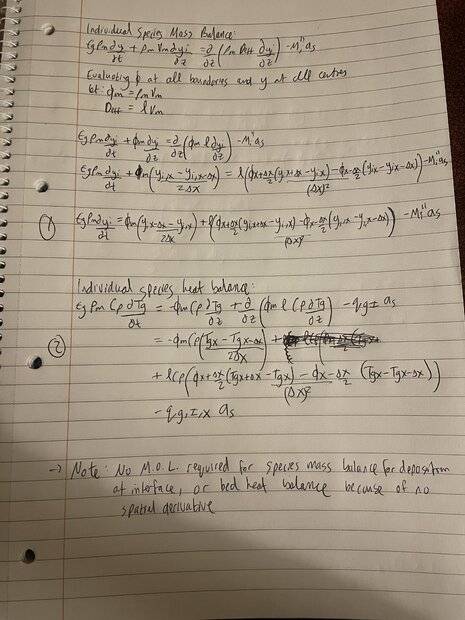 Individual Species Mass Balance:
εgρm ∂yi/∂t + ρm Vm ∂yi/∂z = ∂/∂z (ρm Deff ∂yi/∂z) - Mi'' as
Evaluating ϕ at all boundaries and y at all centres
let: ϕm = ρm Vm
Deff = l Vm
εgρm ∂yi/∂t + ϕm ∂yi/∂z = ∂/∂z (ϕm l ∂yi/∂z) - Mi'' as
εgρm ∂yi/∂t + ϕm (yi,x - yi,x-Δx)/2Δx = l (ϕx+Δx/2 (yi,x+Δx - yi,x) - ϕx-Δx/2 (yi,x - yi,x-Δx))/(Δx)² - Mi'' as
① εgρm ∂yi/∂t = ϕm (yi,x-Δx - yi,x)/2Δx + l (ϕx+Δx/2 (yi,x+Δx - yi,x) - ϕx-Δx/2 (yi,x - yi,x-Δx))/(Δx)² - Mi'' as
Individual species heat balance:
εgρm Cp ∂Tg/∂t = -ϕm Cp ∂Tg/∂z + ∂/∂z (ϕm l Cp ∂Tg/∂z) - qg,I as
② = -ϕm Cp (Tgx - Tgx-Δx)/2Δx +
+ l Cp (ϕx+Δx/2 (Tgx+Δx - Tgx) - ϕx-Δx/2 (Tgx - Tgx-Δx))/(Δx)²
- qg,I,x as
→ Note: No M.O.L. required for species mass balance for deposition
at interface, or bed heat balance because of no
spatial derivative